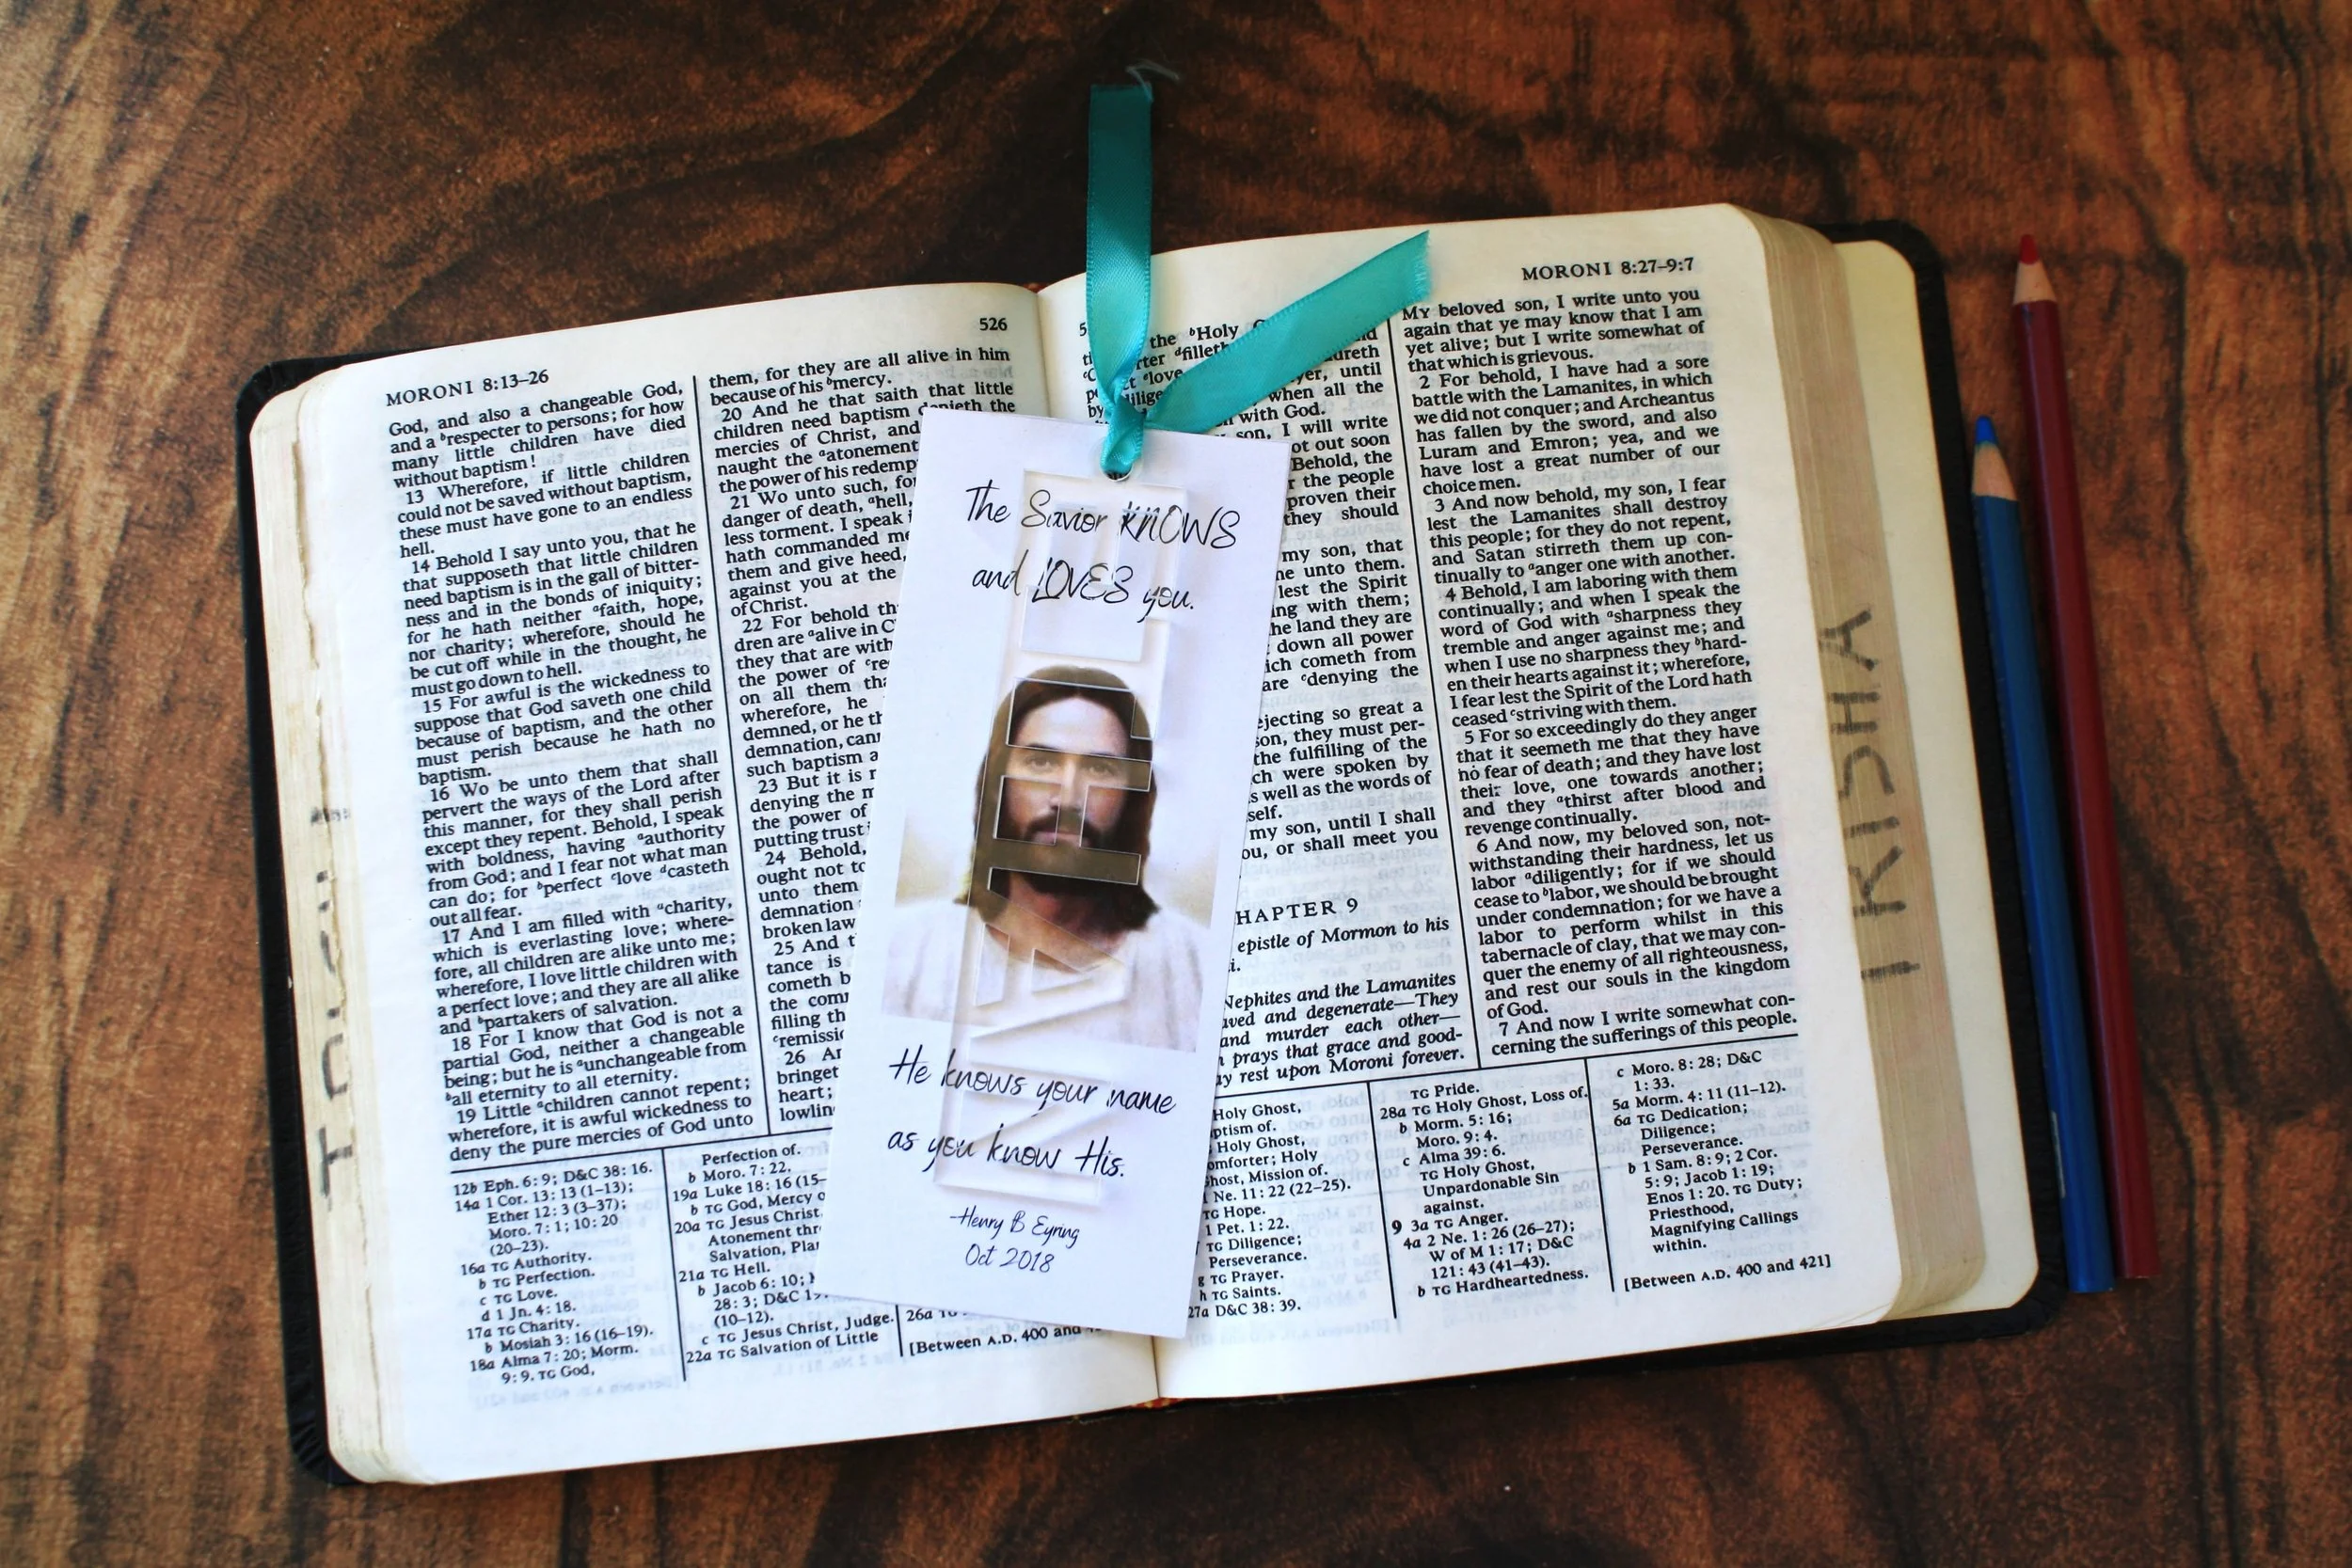 MORONI 8:13–26
526
God, and also a changeable God,
and a ᵇrespecter to persons; for how
many little children have died
without baptism!
13 Wherefore, if little children
could not be saved without baptism,
these must have gone to an endless
hell.
14 Behold I say unto you, that he
that supposeth that little children
need baptism is in the gall of bitter-
ness and in the bonds of iniquity;
for he hath neither ᵃfaith, hope,
nor charity; wherefore, should he
be cut off while in the thought, he
must go down to hell.
15 For awful is the wickedness to
suppose that God saveth one child
because of baptism, and the other
must perish because he hath no
baptism.
16 Wo be unto them that shall
pervert the ways of the Lord after
this manner, for they shall perish
except they repent. Behold, I speak
with boldness, having ᵃauthority
from God; and I fear not what man
can do; for ᵇperfect ᶜlove ᵈcasteth
out all fear.
17 And I am filled with ᵃcharity,
which is everlasting love; where-
fore, all children are alike unto me;
wherefore, I love little children with
a perfect love; and they are all alike
and ᵇpartakers of salvation.
18 For I know that God is not a
partial God, neither a changeable
being; but he is ᵃunchangeable from
ᵇall eternity to all eternity.
19 Little ᵃchildren cannot repent;
wherefore, it is awful wickedness to
deny the pure mercies of God unto
them, for they are all alive in him
because of his ᵇmercy.
20 And he that saith that little
children need baptism denieth the
mercies of Christ, and
naught the ᵃatonement
the power of his redemp
21 Wo unto such, fo
danger of death, ᵃhell,
less torment. I speak i
hath commanded me
them and give heed,
against you at the
of Christ.
22 For behold th
dren are ᵃalive in C
they that are with
the power of ᶜre
on all them tha
wherefore, he
demned, or he th
demnation, can
such baptism a
23 But it is
denying the m
the power of
putting trust
24 Behold,
ought not to
unto them
demnation
broken law
25 And t
tance is
cometh b
the com
filling th
ᶜremissi
26 An
bringet
heart;
lowlin
12b Eph. 6:9; D&C 38:16.
14a 1 Cor. 13:13 (1–13);
Ether 12:3 (3–37);
Moro. 7:1; 10:20
(20–23).
16a TG Authority.
b TG Perfection.
c TG Love.
d 1 Jn. 4:18.
17a TG Charity.
b Mosiah 3:16 (16–19).
18a Alma 7:20; Morm.
9:9. TG God,
Perfection of.
b Moro. 7:22.
19a Luke 18:16 (15–
b TG God, Mercy o
20a TG Jesus Christ,
Atonement thr
Salvation, Pla
21a TG Hell.
b Jacob 6:10;
28:3; D&C
(10–12).
c TG Jesus Christ, Judge.
22a TG Salvation of Little
26a TG
[Between A.D. 400 and
The Savior KNOWS
and LOVES you.
He knows your name
as you know His.
Henry B Eyring
Oct 2018
MORONI 8:27–9:7
the ᵇHoly
ᵈfilleth
ᵉlove
until
when all the
with God.
son, I will write
ot out soon
Behold, the
the people
proven their
they should
my son, that
unto them.
lest the Spirit
ng with them;
he land they are
down all power
ich cometh from
are ᶜdenying the
ejecting so great a
son, they must per-
the fulfilling of the
ch were spoken by
s well as the words of
self.
my son, until I shall
ou, or shall meet you
HAPTER 9
epistle of Mormon to his
i.
Nephites and the Lamanites
aved and degenerate—They
and murder each other—
prays that grace and good-
ay rest upon Moroni forever.
MY beloved son, I write unto you
again that ye may know that I am
yet alive; but I write somewhat of
that which is grievous.
2 For behold, I have had a sore
battle with the Lamanites, in which
we did not conquer; and Archeantus
has fallen by the sword, and also
Luram and Emron; yea, and we
have lost a great number of our
choice men.
3 And now behold, my son, I fear
lest the Lamanites shall destroy
this people; for they do not repent,
and Satan stirreth them up con-
tinually to ᵃanger one with another.
4 Behold, I am laboring with them
continually; and when I speak the
word of God with ᵃsharpness they
tremble and anger against me; and
when I use no sharpness they ᵇhard-
en their hearts against it; wherefore,
I fear lest the Spirit of the Lord hath
ceased ᶜstriving with them.
5 For so exceedingly do they anger
that it seemeth me that they have
no fear of death; and they have lost
their love, one towards another;
and they ᵃthirst after blood and
revenge continually.
6 And now, my beloved son, not-
withstanding their hardness, let us
labor ᵃdiligently; for if we should
cease to ᵇlabor, we should be brought
under condemnation; for we have a
labor to perform whilst in this
tabernacle of clay, that we may con-
quer the enemy of all righteousness,
and rest our souls in the kingdom
of God.
7 And now I write somewhat con-
cerning the sufferings of this people.
Holy Ghost,
ptism of.
Holy Ghost,
omforter; Holy
host, Mission of.
Ne. 11:22 (22–25).
TG Hope.
1 Pet. 1:22.
TG Diligence;
Perseverance.
g TG Prayer.
h TG Saints.
27a D&C 38:39.
TG Pride.
28a TG Holy Ghost, Loss of.
b Morm. 5:16;
Moro. 9:4.
c Alma 39:6.
TG Holy Ghost,
Unpardonable Sin
against.
9 3a TG Anger.
4a 2 Ne. 1:26 (26–27);
W of M 1:17; D&C
121:43 (41–43).
b TG Hardheartedness.
c Moro. 8:28; D&C
1:33.
5a Morm. 4:11 (11–12).
6a TG Dedication;
Diligence;
Perseverance.
b 1 Sam. 8:9; 2 Cor.
5:9; Jacob 1:19;
Enos 1:20. TG Duty;
Priesthood,
Magnifying Callings
within.
[Between A.D. 400 and 421]
TRISHA